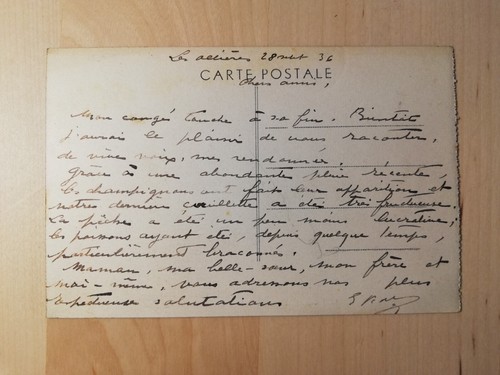 Les 28 août 36
CARTE POSTALE
Chers amis,
Mon congé touche à sa fin. Bientôt
j'aurai le plaisir de vous raconter,
de vive voix, mes randonnées.
Grâce à une abondante pluie récente,
les champignons ont fait leur apparition et
notre dernière cueillette a été très fructueuse.
La pêche a été un peu moins lucrative;
les poissons ayant été, depuis quelque temps,
particulièrement braconnés.
Maman, ma belle-sœur, mon frère et
moi-même, vous adressons nos plus
respectueuses salutations